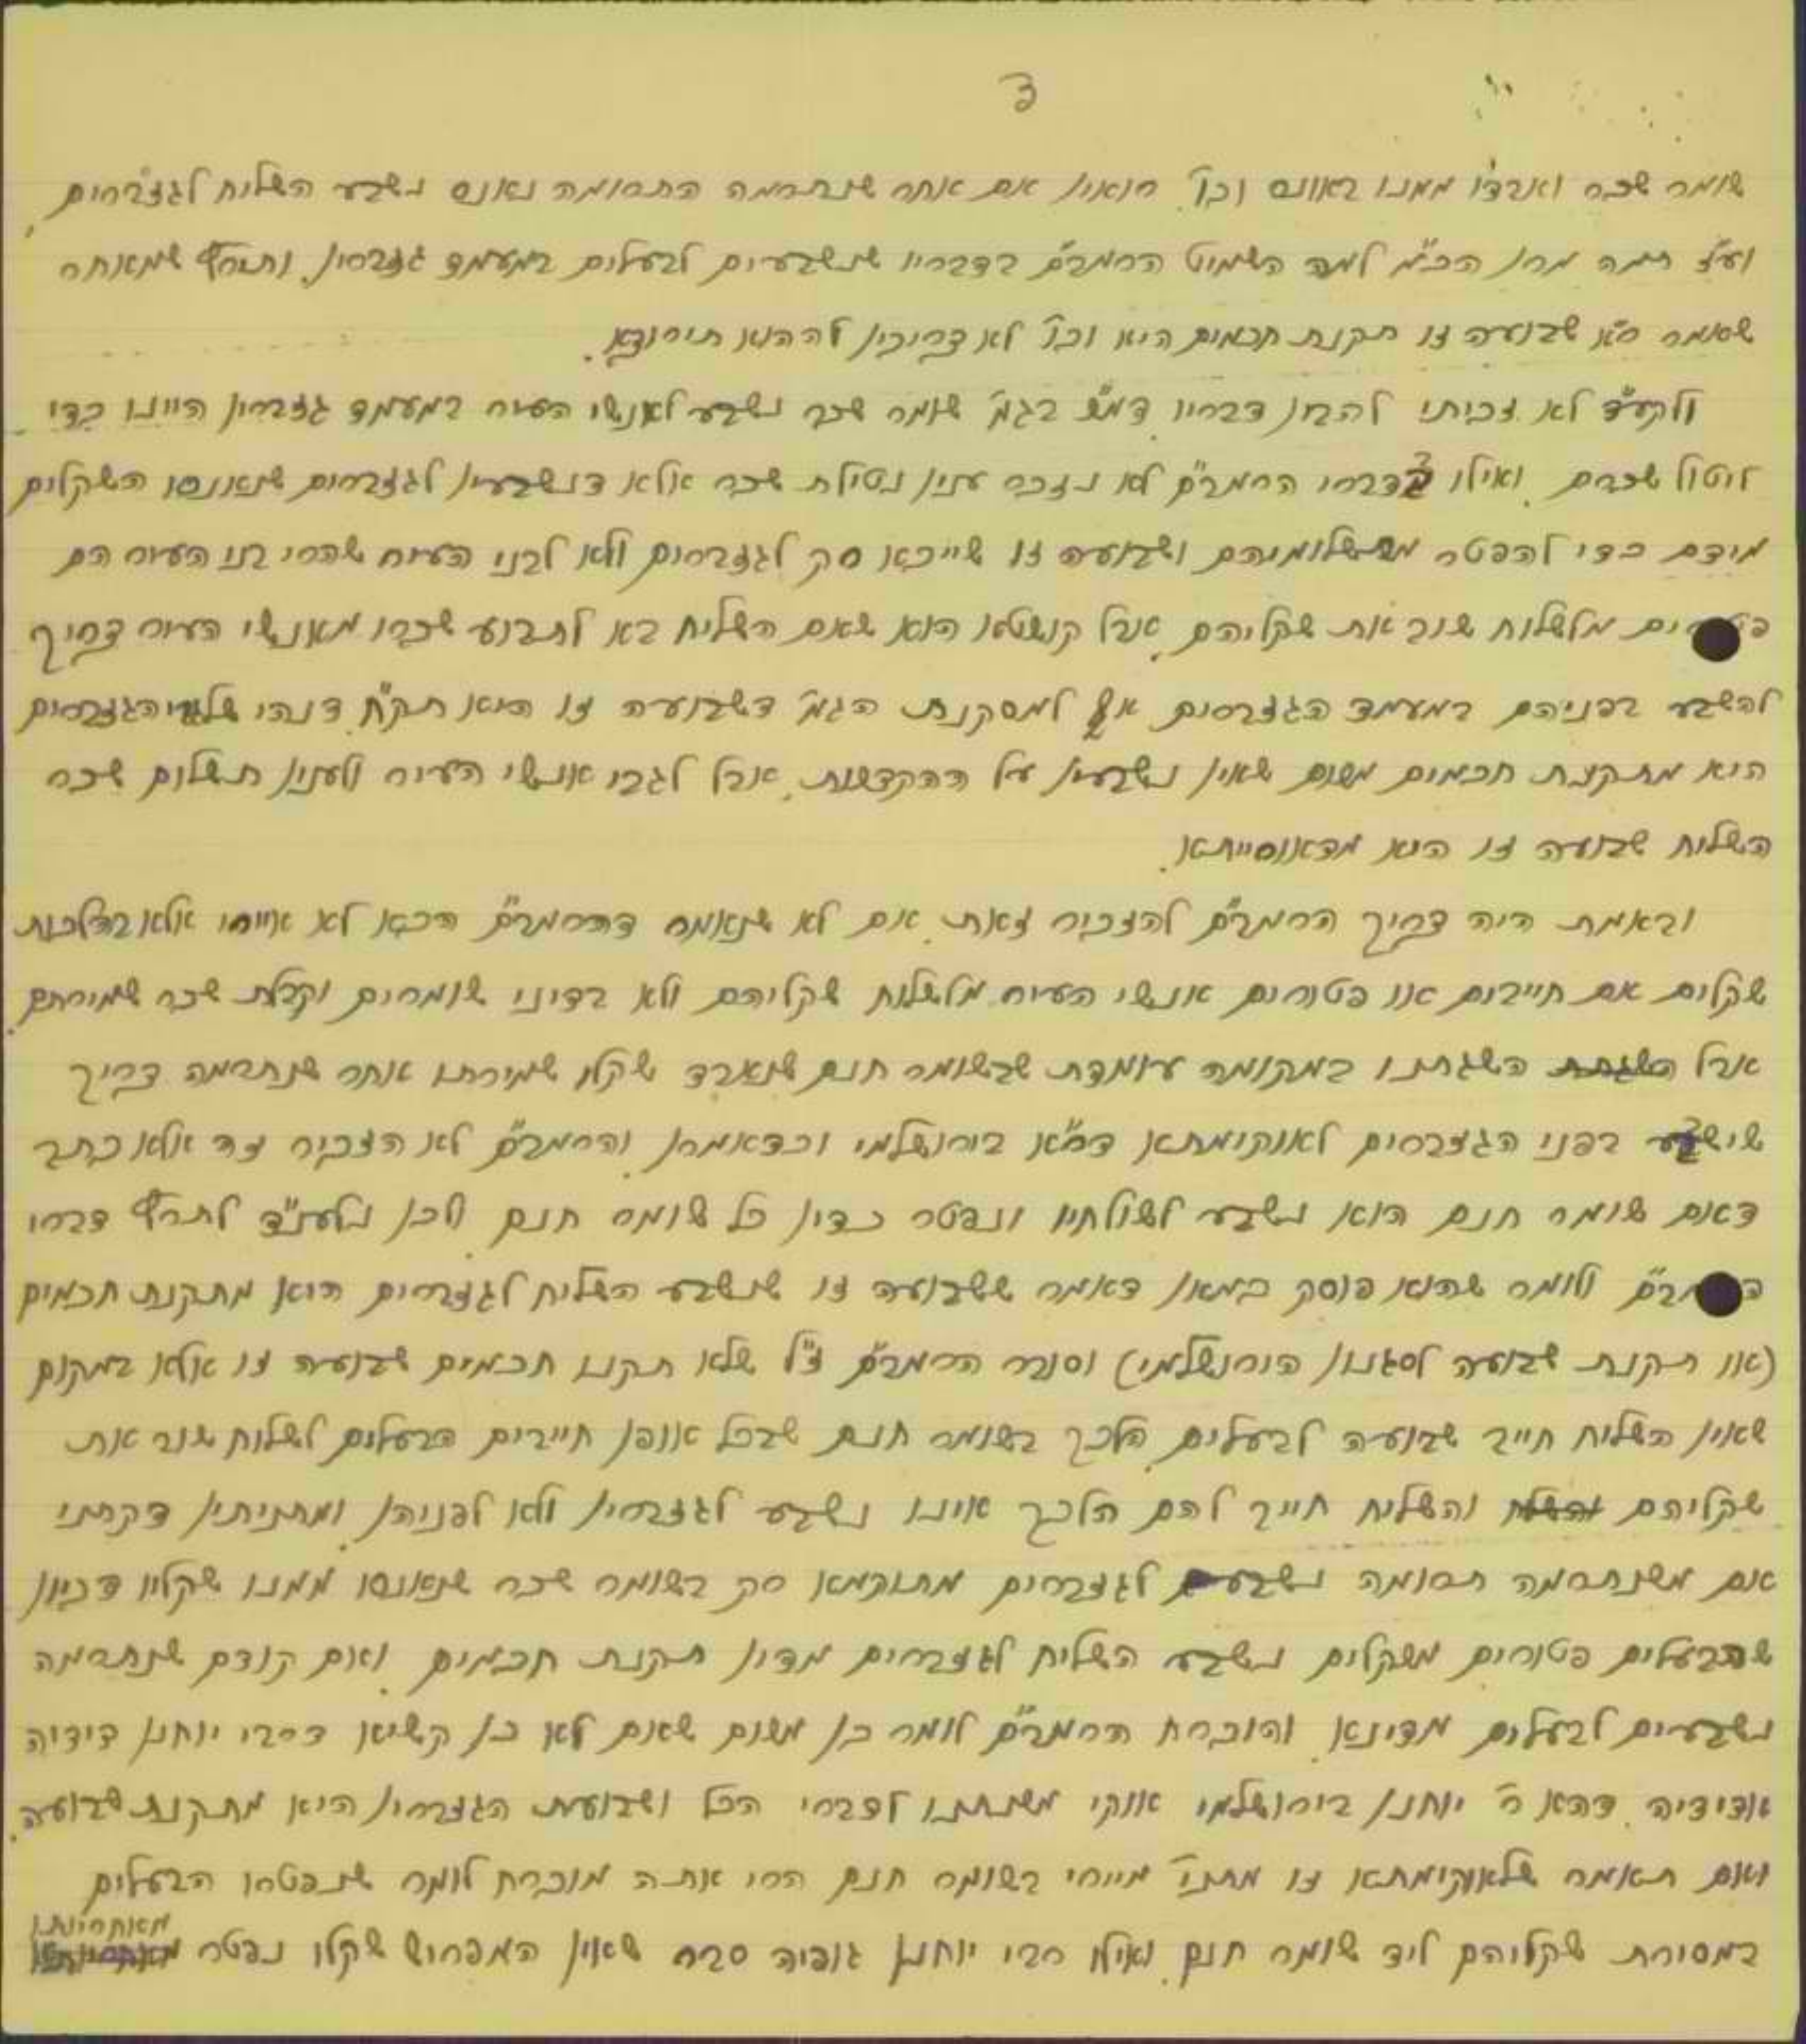 ג
שומר שכר ואבדו ממנו באונס וכו' רואין אם אחר שנתרמה התרומה נאנס נשבע השליח לגזברים,
וע"ז תמה מרן הכ"מ למה השמיט הרמב"ם בדבריו שנשבעים לבעלים במעמד גזברין, ותירץ שמאחר
שאמר ר"א שבועה זו תקנת חכמים היא וכו' לא צריכין לההוא תירוצא.
ולקע"ד לא זכיתי להבין דבריו, דמ"ש בגמ' שומר שכר נשבע לאנשי העיר במעמד גזברין היינו כדי
ליטול שכרם, ואילו בדברי הרמב"ם לא נזכר ענין נטילת שכר אלא דנשבעין לגזברים שנאנסו השקלים
מידם כדי להפטר מתשלומיהם ושבועה זו שייכא רק לגזברים ולא לבני העיר שהרי בני העיר הם
פטורים מלשלוח שוב את שקליהם, אבל קושטא הוא שאם השליח בא לתבוע שכרו מאנשי העיר צריך
להשבע בפניהם במעמד הגזברים אף למסקנת הגמ' דשבועה זו היא תק"ח, דנהי שלגבי הגזברים
היא מתקנת חכמים משום שאין נשבעין על ההקדשות, אבל לגבי אנשי העיר ולענין תשלום שכר
השליח שבועה זו היא מדאורייתא.
ובאמת היה צריך הרמב"ם להזכיר זאת, אם לא שנאמר דהרמב"ם הכא לא איירי אלא בהלכות
שקלים אם חייבים או פטורים אנשי העיר מלשלוח שקליהם ולא בדיני שומרים וקבלת שכר שמירתם,
אבל השגתנו במקומה עומדת שבשומר חנם שאבד שקלו שמירתו אחר שנתרמה צריך
שישבע בפני הגזברים לאוקימתא דר"א בירושלמי וכדאמרן, והרמב"ם לא הזכיר זה אלא כתב
דאם שומר חנם הוא נשבע לשולחיו ונפטר כדין כל שומר חנם, ולכן נלענ"ד לתרץ דברי
הרמב"ם ולומר שהוא פוסק כמאן דאמר ששבועה זו שנשבע השליח לגזברים היא מתקנת חכמים
(או תקנת שבועה לסגנון הירושלמי) וסובר הרמב"ם ז"ל שלא תקנו חכמים שבועה זו אלא במקום
שאין השליח חייב שבועה לבעלים, הלכך בשומר חנם שבכל אופן חייבים הבעלים לשלוח שוב את
שקליהם והשליח חייב להם הלכך אינו נשבע לגזברין ולא לפניהן, ומתניתין דקתני
אם משנתרמה תרומה נשבעים לגזברים מתוקמא רק בשומר שכר שנאנסו ממנו שקליו דכיון
שהבעלים פטורים משקלים נשבע השליח לגזברים מדין תקנת חכמים, ואם קודם שנתרמה
נשבעים לבעלים מדינא, והוכרח הרמב"ם לומר כן משום שאם לא כן קשיא דרבי יוחנן דידיה
אדידיה, דהא ר' יוחנן בירושלמי אוקי משנתנו לדברי הכל ושבועת הגזברין היא מתקנת שבועה,
ואם תאמר שלאוקימתא זו מתני' מיירי בשומר חנם הרי אתה מוכרח לומר שנפטרו הבעלים
במסירת שקליהם ליד שומר חנם, ואילו רבי יוחנן גופיה סבר שאין המפריש שקלו נפטר מאחריותו